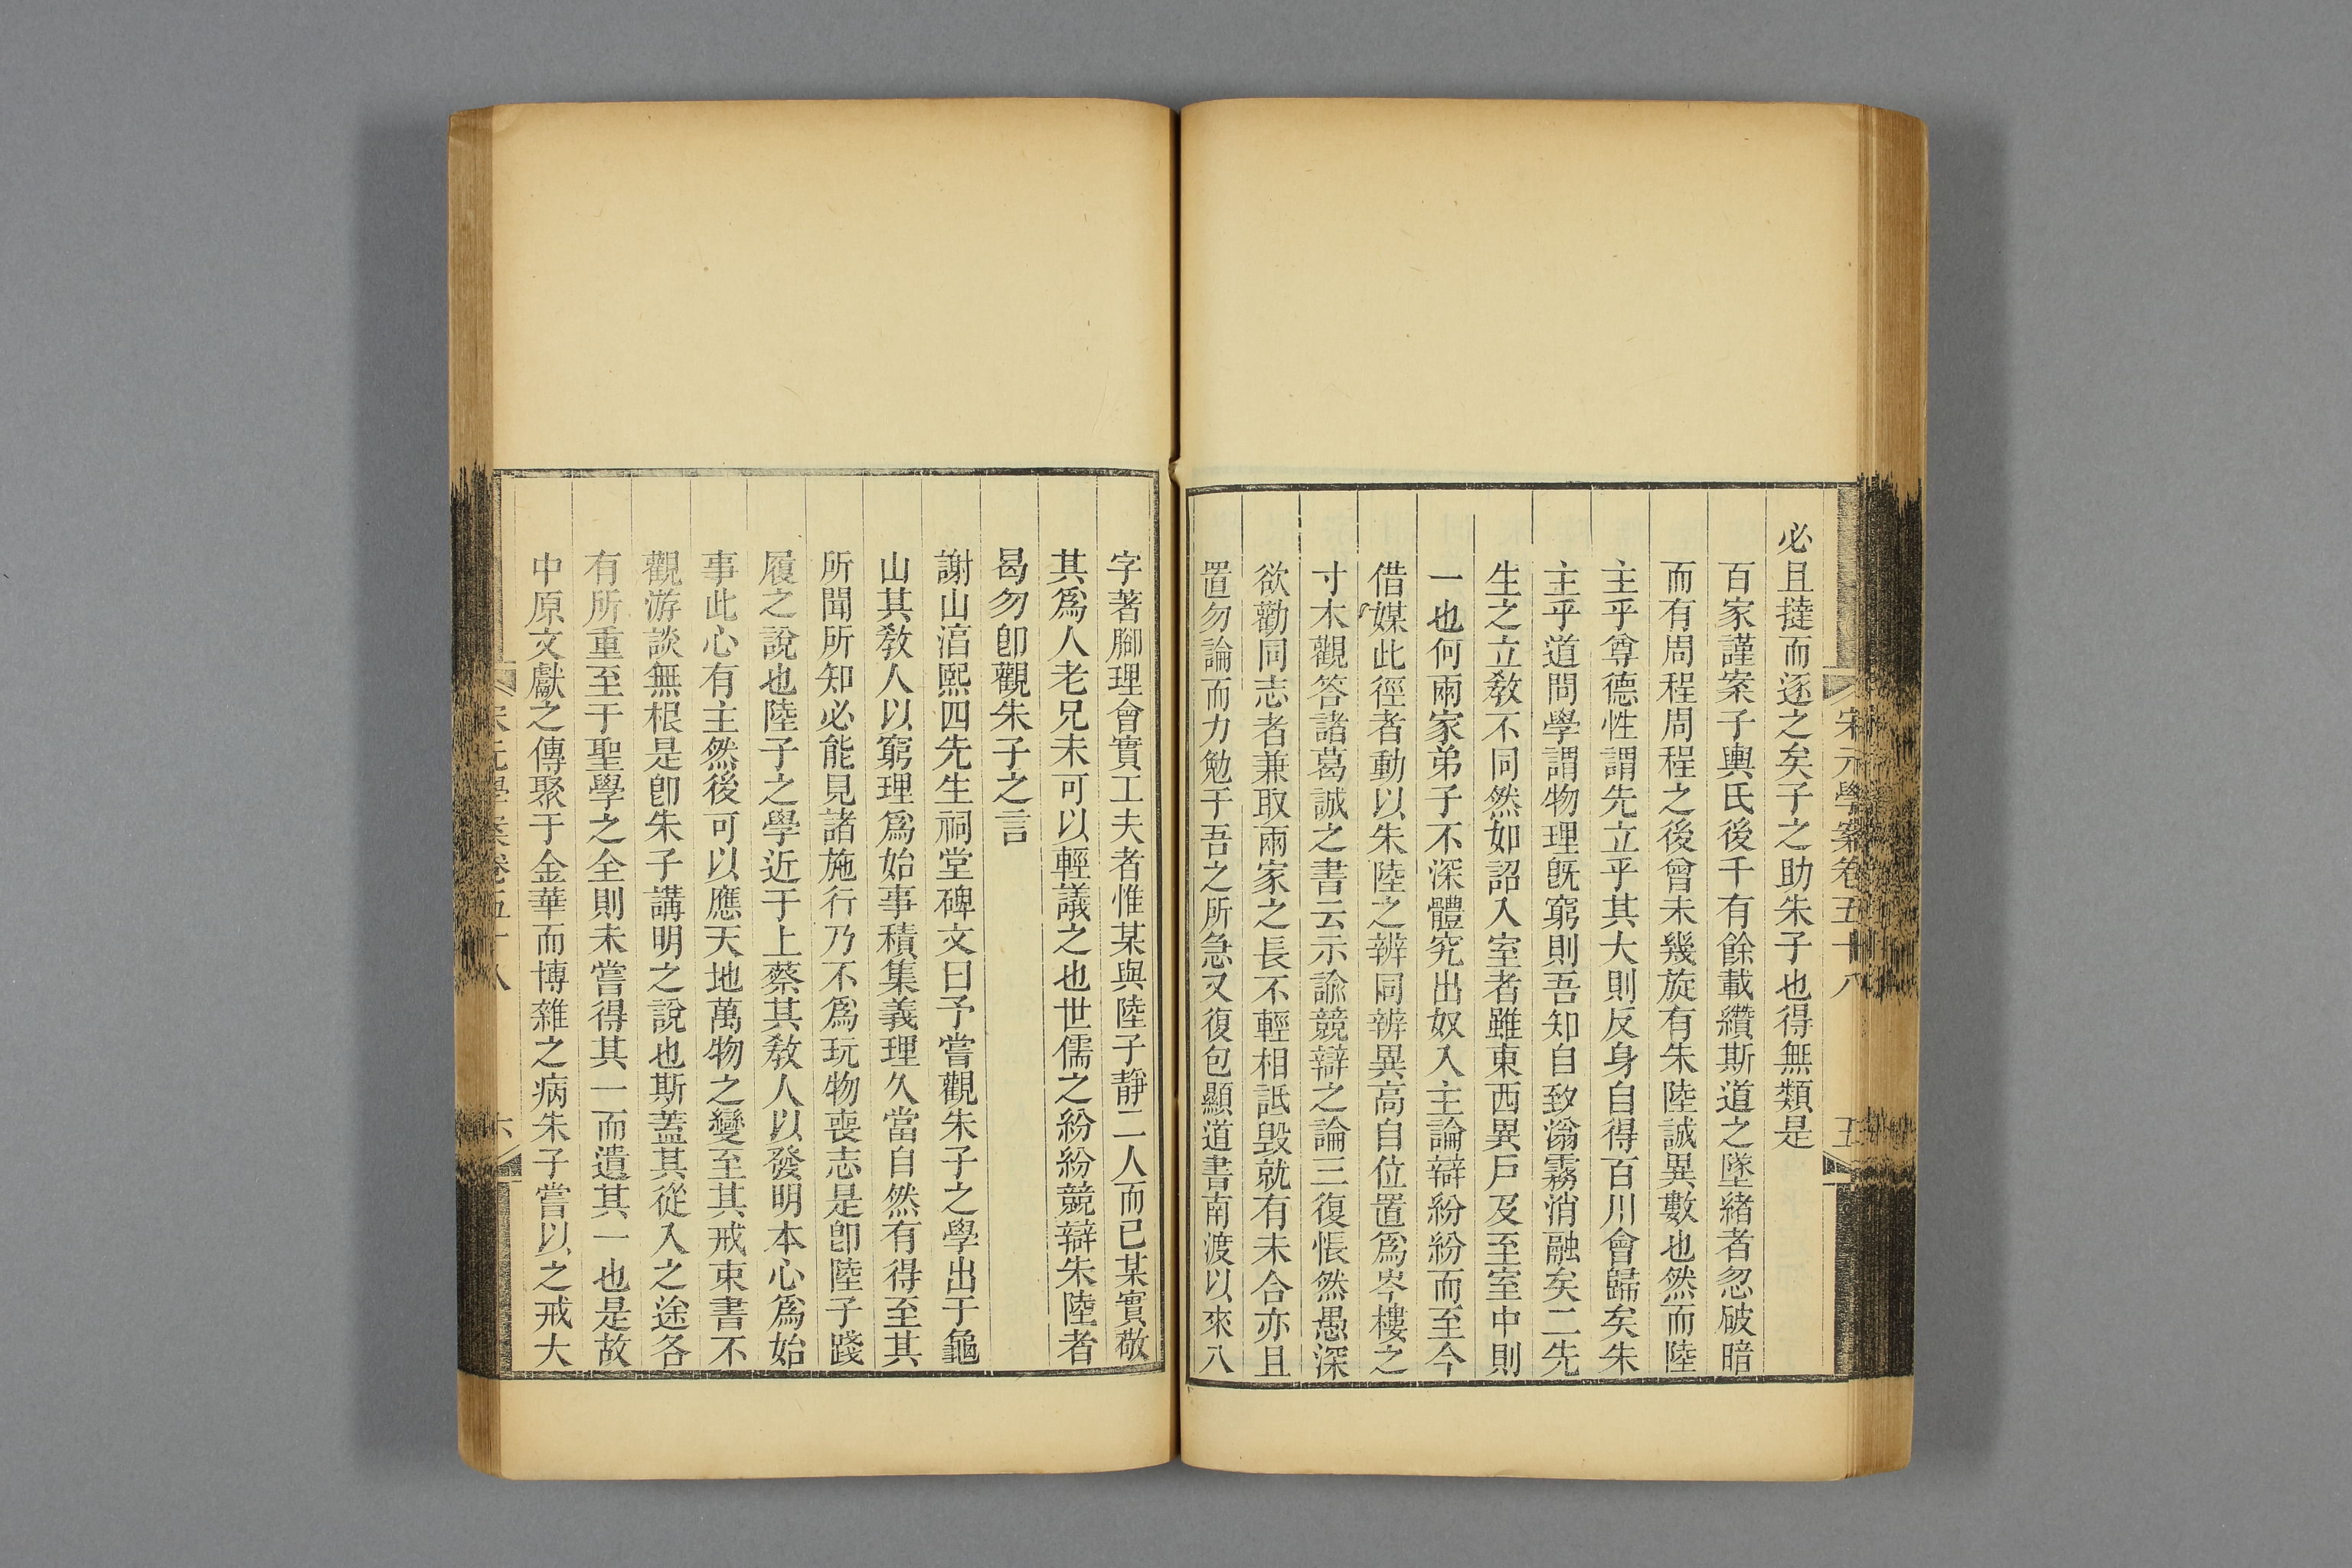 宋元學案卷五十八
五
必且撻而逐之矣子之助朱子也得無類是
百家謹案子輿氏後千有餘載纘斯道之墜緒者忽破暗
而有周程周程之後曾未幾旋有朱陸誠異數也然而陸
主乎尊德性謂先立乎其大則反身自得百川會歸矣朱
主乎道問學謂物理旣窮則吾知自致滃霧消融矣二先
生之立敎不同然如詔入室者雖東西異戶及至室中則
一也何兩家弟子不深體究出奴入主論辯紛紛而至今
借媒此徑者動以朱陸之辨同辨異高自位置爲岑樓之
寸木觀答諸葛誠之書云示諭競辯之論三復悵然愚深
欲勸同志者兼取兩家之長不輕相詆毀就有未合亦且
置勿論而力勉于吾之所急又復包顯道書南渡以來八
字著腳理會實工夫者惟某與陸子靜二人而已某實敬
其爲人老兄未可以輕議之也世儒之紛紛競辯朱陸者
曷勿卽觀朱子之言
謝山淳熙四先生祠堂碑文曰予嘗觀朱子之學出于龜
山其敎人以窮理爲始事積集義理久當自然有得至其
所聞所知必能見諸施行乃不爲玩物喪志是卽陸子踐
履之說也陸子之學近于上蔡其敎人以發明本心爲始
事此心有主然後可以應天地萬物之變至其戒束書不
觀游談無根是卽朱子講明之說也斯蓋其從入之途各
有所重至于聖學之全則未嘗得其一而遺其一也是故
中原文獻之傳聚于金華而博雜之病朱子嘗以之戒大
宋元學案卷五十八
六